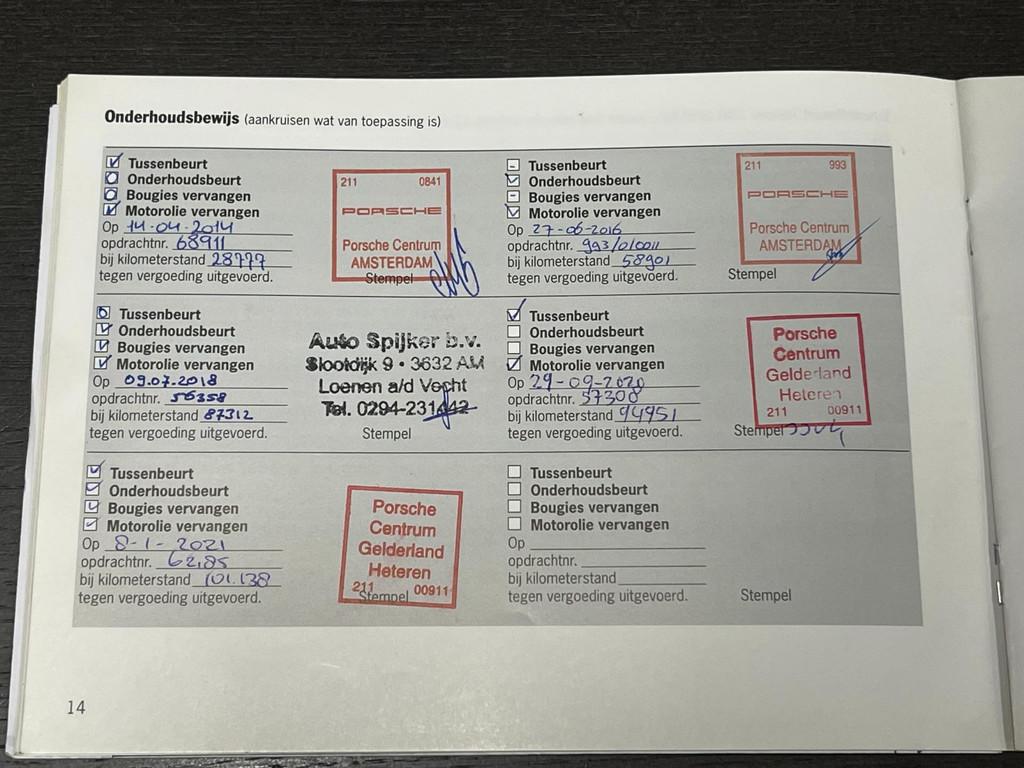 Onderhoudsbewijs (aankruisen wat van toepassing is)
Tussenbeurt
Onderhoudsbeurt
Bougies vervangen
Motorolie vervangen
Op 14-04-2014
opdrachtnr. 68911
bij kilometerstand 28777
tegen vergoeding uitgevoerd.
211 0841
PORSCHE
Porsche Centrum
AMSTERDAM
Stempel
Tussenbeurt
Onderhoudsbeurt
Bougies vervangen
Motorolie vervangen
Op 27-06-2016
opdrachtnr. 993/010011
bij kilometerstand 58901
tegen vergoeding uitgevoerd.
211 993
PORSCHE
Porsche Centrum
AMSTERDAM
Stempel
Tussenbeurt
Onderhoudsbeurt
Bougies vervangen
Motorolie vervangen
Op 09.07.2018
opdrachtnr. 56358
bij kilometerstand 87312
tegen vergoeding uitgevoerd.
Auto Spijker b.v.
Slootdijk 9 • 3632 AM
Loenen a/d Vecht
Tel. 0294-231442
Stempel
Tussenbeurt
Onderhoudsbeurt
Bougies vervangen
Motorolie vervangen
Op 29-09-2020
opdrachtnr. 57300
bij kilometerstand 94951
tegen vergoeding uitgevoerd.
Porsche
Centrum
Gelderland
Heteren
211 00911
Stempel
Tussenbeurt
Onderhoudsbeurt
Bougies vervangen
Motorolie vervangen
Op 8-1-2021
opdrachtnr. 62,85
bij kilometerstand 101.138
tegen vergoeding uitgevoerd.
Porsche
Centrum
Gelderland
Heteren
211 00911
Stempel
Tussenbeurt
Onderhoudsbeurt
Bougies vervangen
Motorolie vervangen
Op
opdrachtnr.
bij kilometerstand
tegen vergoeding uitgevoerd.
Stempel
14